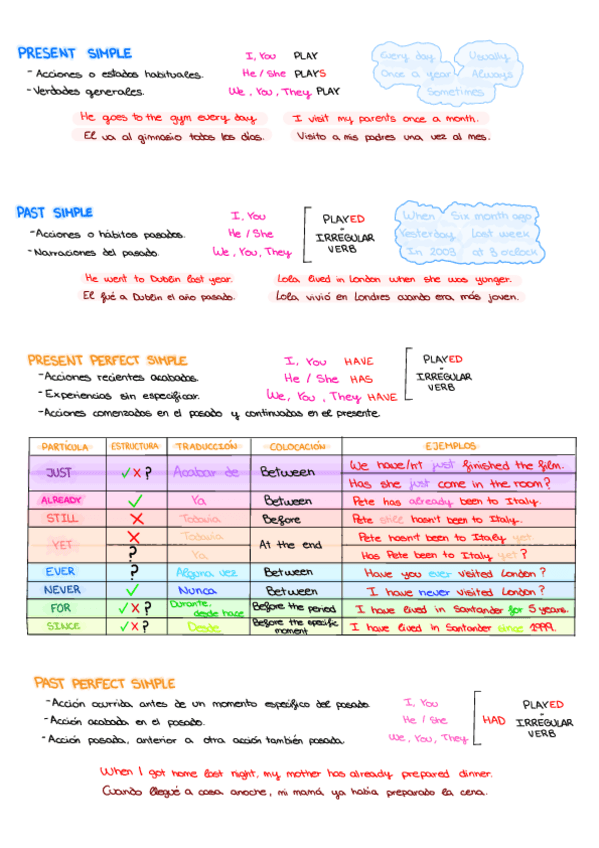 PRESENT SIMPLE
I, You PLAY
Every day Usually
- Acciones o estados habituales.
He / She PLAYS
Once a year Always
- Verdades generales.
We, You, They PLAY
Sometimes
He goes to the gym every day
I visit my parents once a month.
El va al gimnasio todos los días.
Visito a mis padres una vez al mes.
PAST SIMPLE
I, You
PLAYED
When Six month ago
- Acciones o hábitos pasados.
He / She
-
IRREGULAR
VERB
Yesterday Last week
- Narraciones del pasado.
We, You, They
In 2008 at 8 o'clock
He went to Dublin last year.
Lola lived in London when she was yunger.
El fué a Dublin el año pasado.
Lola vivió en Londres cuando era más joven.
PRESENT PERFECT SIMPLE
I, You HAVE
PLAYED
- Acciones recientes acabadas.
He / She HAS
-
IRREGULAR
VERB
- Experiencias sin especificar.
We, You, They HAVE
- Acciones comenzadas en el pasado y continuadas en el presente
PARTÍCULA ESTRUCTURA TRADUCCIÓN COLOCACIÓN EJEMPLOS
JUST ✓ X ? Acabar de Between We have/n't just finished the film.
Has she just come in the room?
ALREADY ✓ Ya Between Pete has already been to Italy.
STILL X Todavia Before Pete still hasn't been to Italy.
YET X Todavia At the end Pete hasn't been to Italy yet
? Ya Has Pete been to Italy yet?
EVER ? Alguna vez Between Have you ever visited London?
NEVER ✓ Nunca Between I have never visited London?
FOR ✓ X ? Durante, desde hace Before the period I have lived in Santander for 5 years.
SINCE ✓ X ? Desde Before the specific moment I have lived in Santander since 1999.
PAST PERFECT SIMPLE
- Acción ocurrida antes de un momento específico del pasado
I, You
PLAYED
- Acción acabada en el pasado.
He / She
HAD
-
IRREGULAR
VERB
- Acción pasada, anterior a otra acción también pasada.
We, You, They
When I got home last night, my mother has already prepared dinner.
Cuando llegué a casa anoche, mi mamá ya habia preparado la cena.